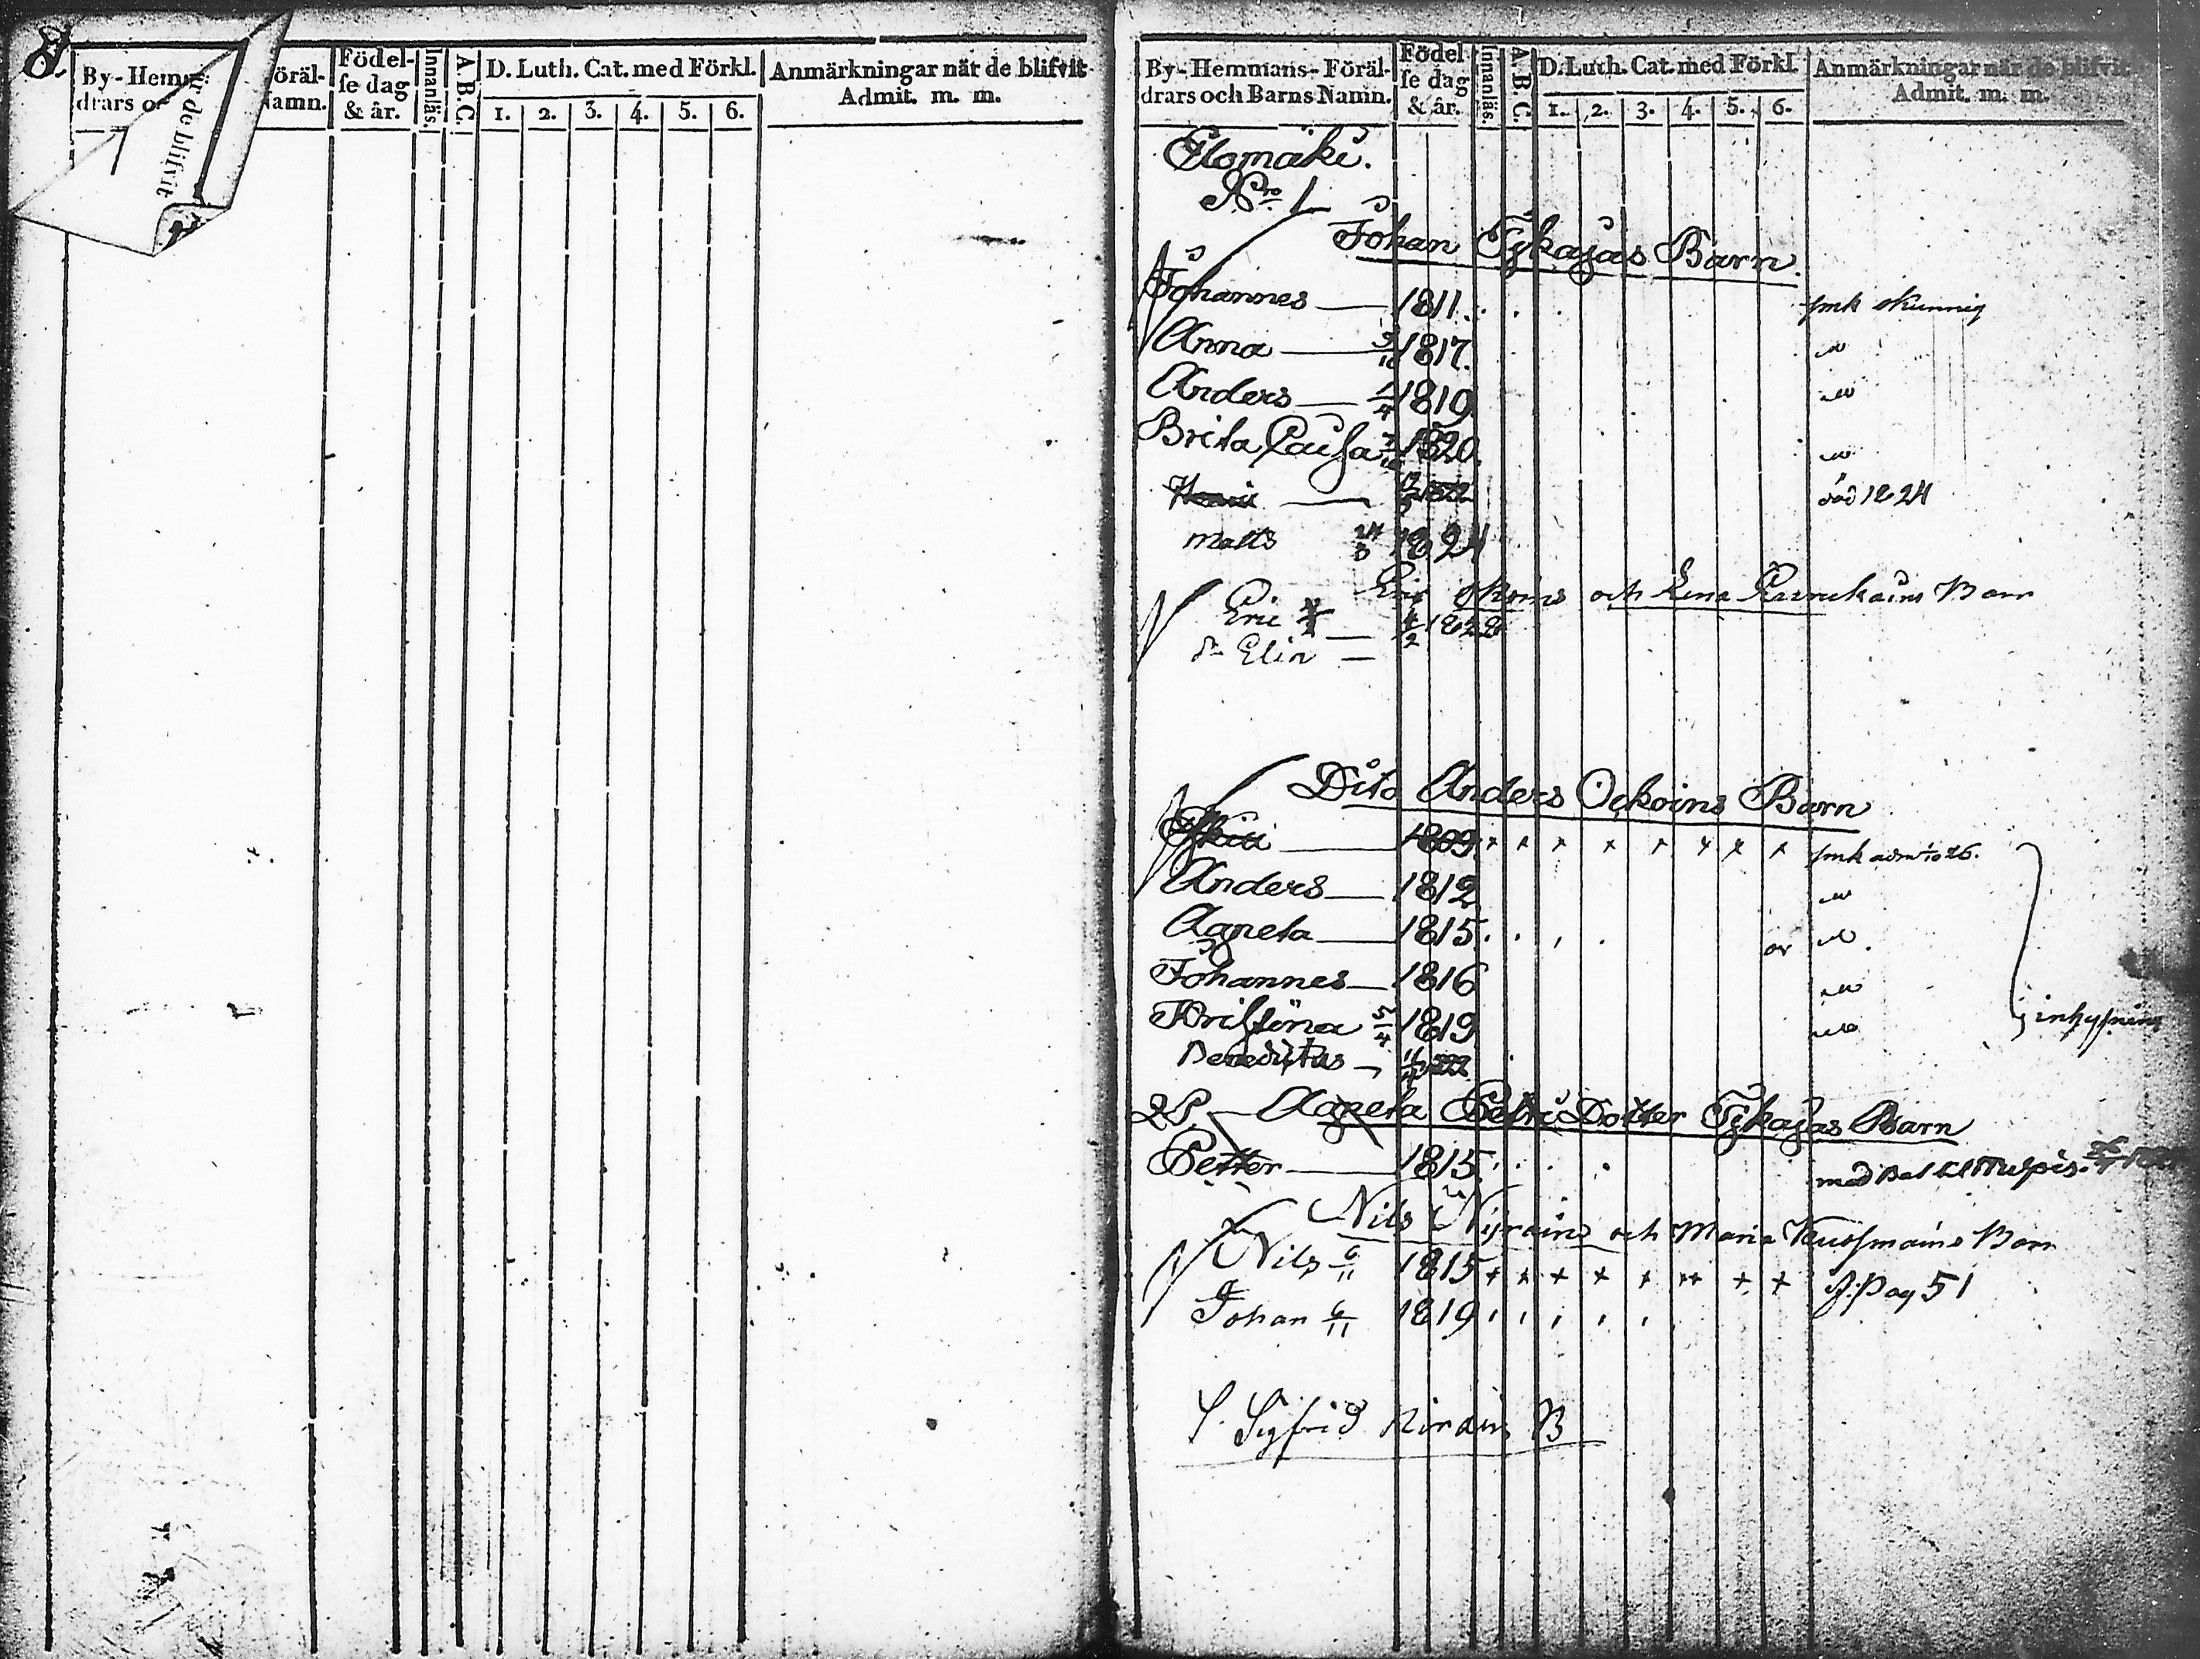 8.
By-Hem
drars oc
är de blifvit
öräl-
Namn.
Födel-
se dag
& år.
Innanläs.
A.B.C.
D. Luth. Cat. med Förkl.
1. 2. 3. 4. 5. 6.
Anmärkningar när de blifvit
Admit. m. m.
By-Hemmans-Föräl-
drars och Barns Namn.
Födel
se dag
& år.
Innanläs.
A.B.C.
D. Luth. Cat. med Förkl.
1. 2. 3. 4. 5. 6.
Anmärkningar när de blifvit
Admit. m. m.
Ilomäki.
Nro 1
Johan Tykajäs Barn.
Johannes — 1811 smk okunnig
Anna — 5/10 1817.
Anders — 1/4 1819
Brita Caisa 1820.
död 1824
Matts 24/3 1824
Eric och Lena Barn
Eric 1822
dr Elin —
Dito Anders Ockoins Barn
1809 × × × × × × × × smk adm 1826.
Anders — 1812
Agneta — 1815
Johannes — 1816
Kristina 5/4 1819 inhysning
Benedictus — 1822
Agneta Petri Dotter Tykajäs Barn
Petter — 1815 med Bet till
Nils Nyrains och Maria Barn
Nils 6/11 1815 × × × × × × × × × f. Pag 51
Johan 6/11 1819
S. Sigfrid B